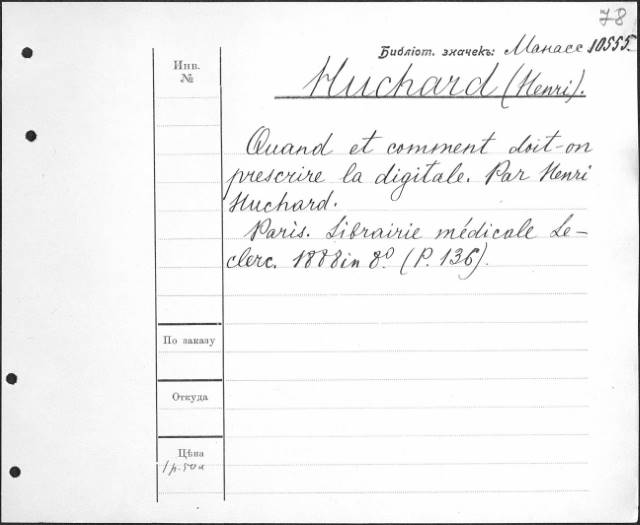 78
Библіот. значекъ: Манасс 10555.
Инв.
№
Huchard (Henri).
Quand et comment doit-on
prescrire la digitale. Par Henri
Huchard.
Paris. Librairie médicale Le-
clerc. 1888 in 8º. (P. 136).
По заказу
Откуда
Цѣна
1 р. 50 к